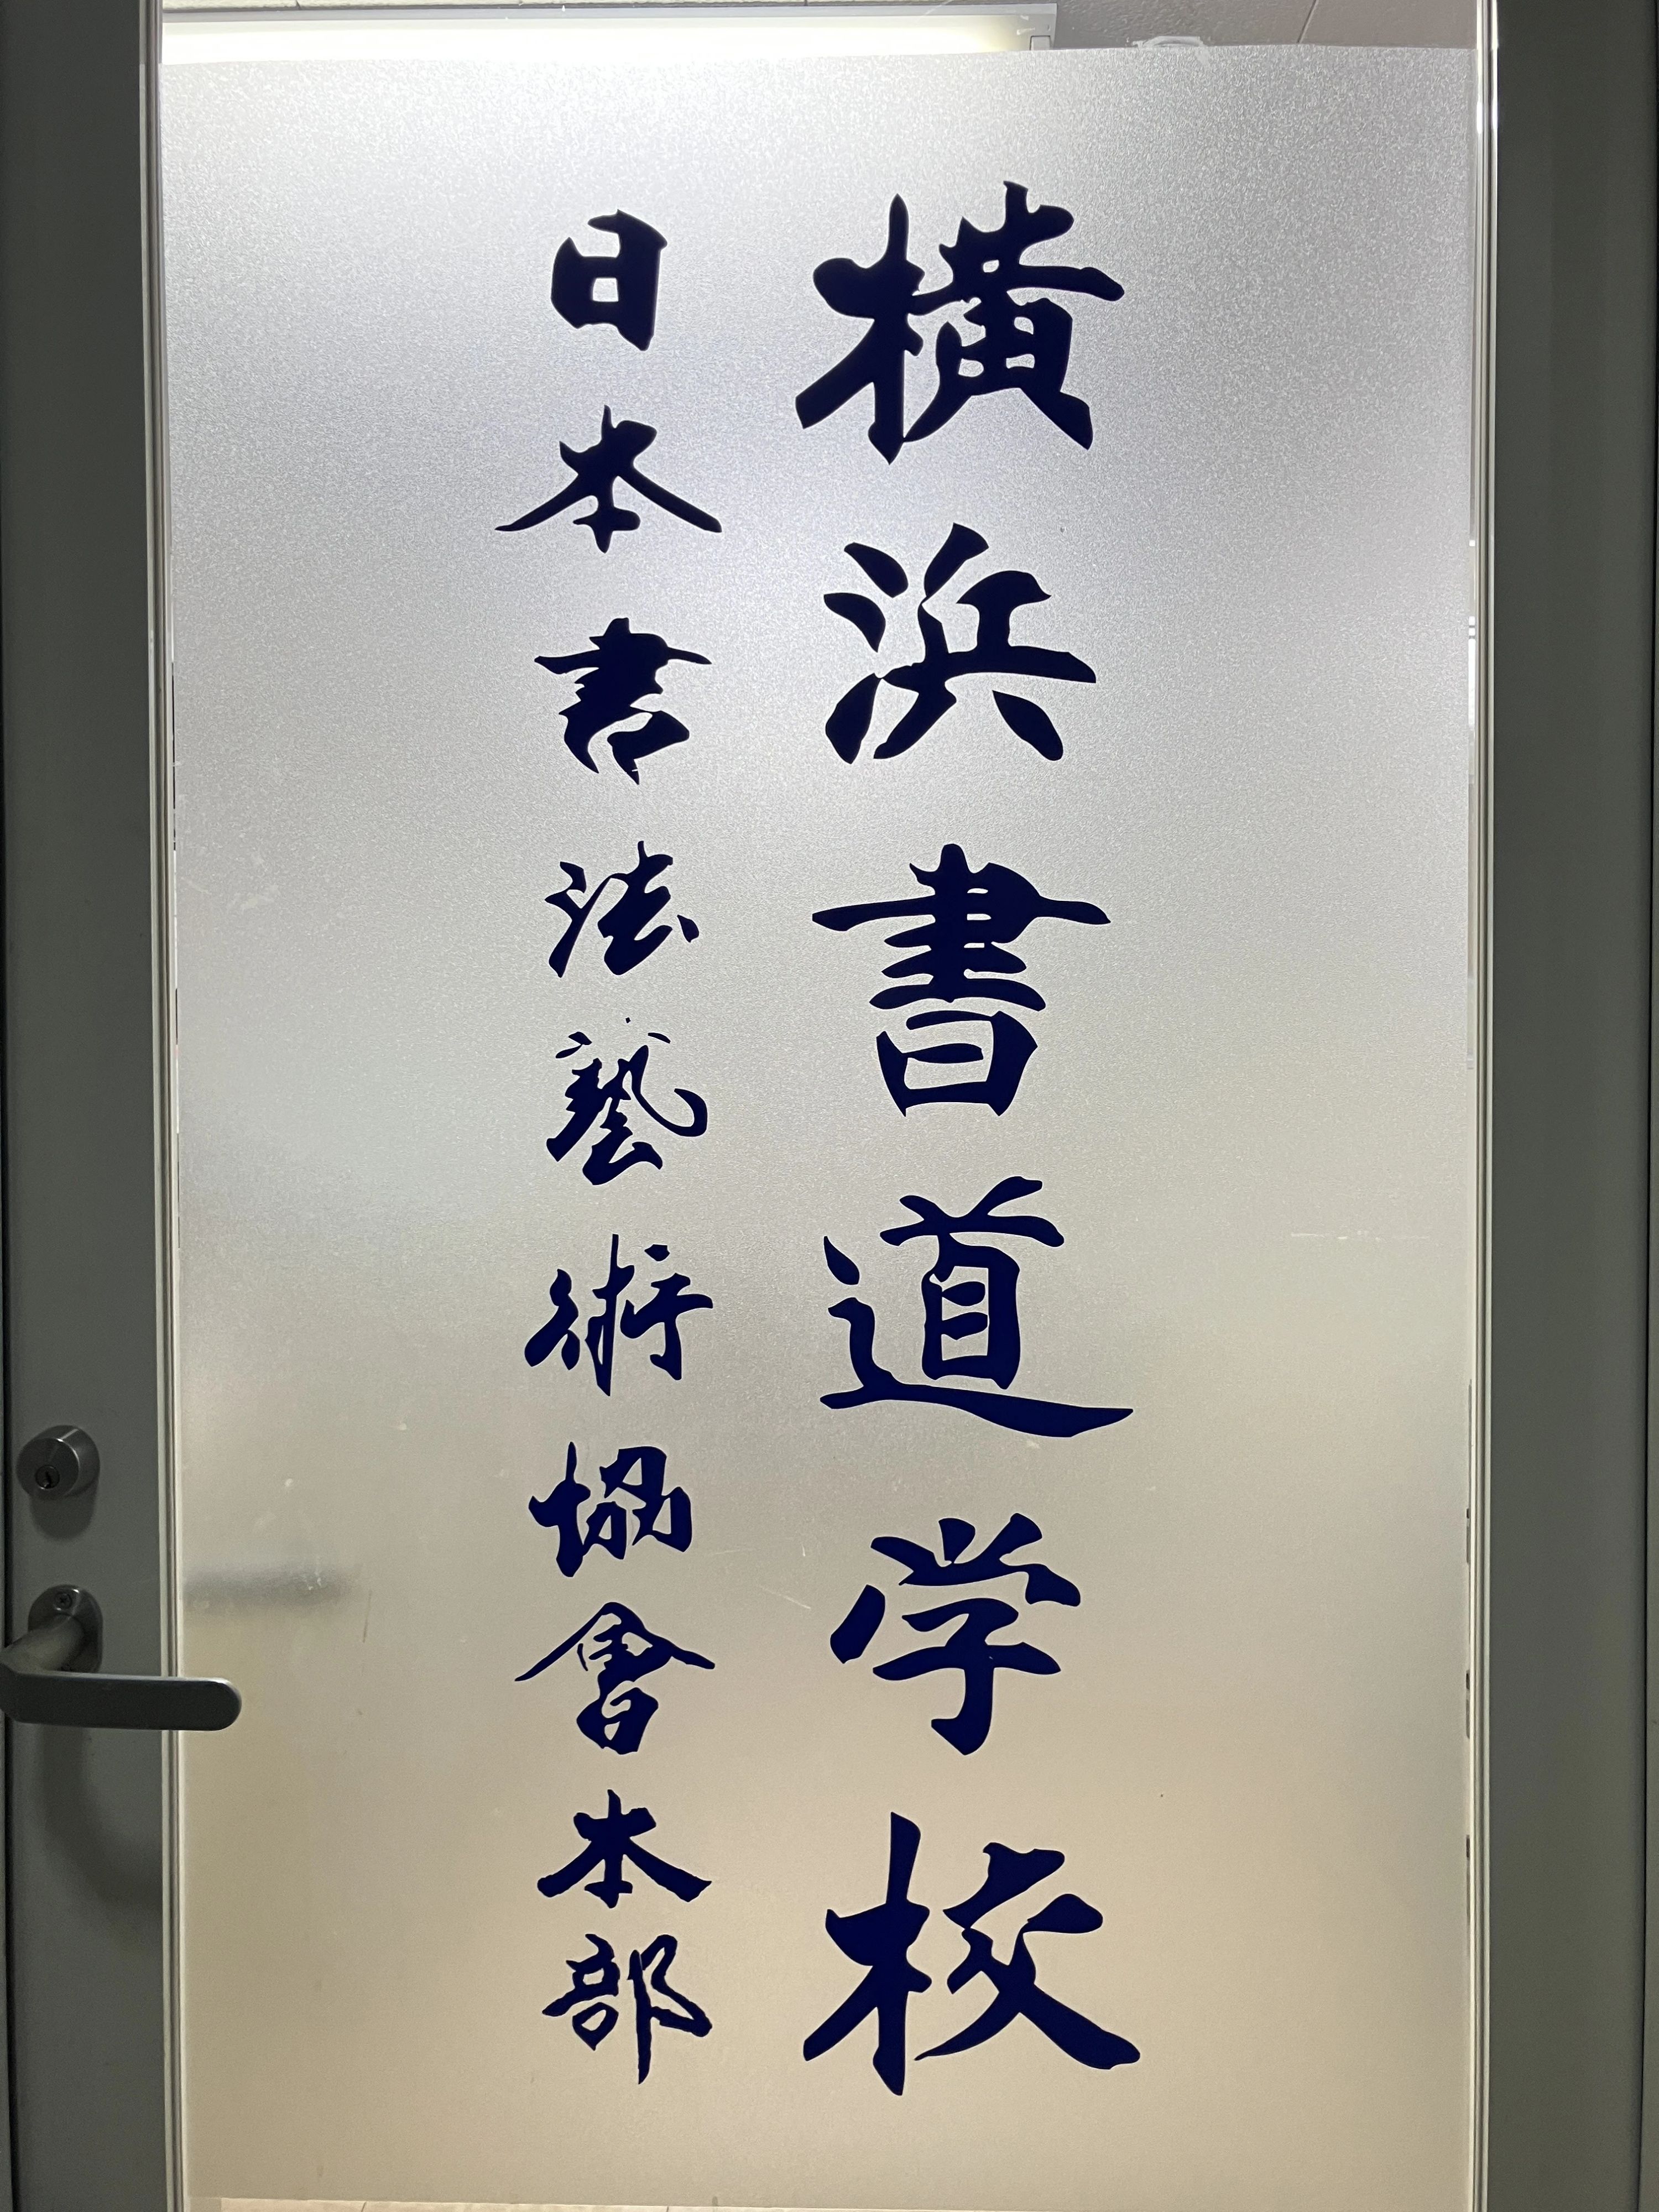 横浜書道学校
日本書法藝術協會本部